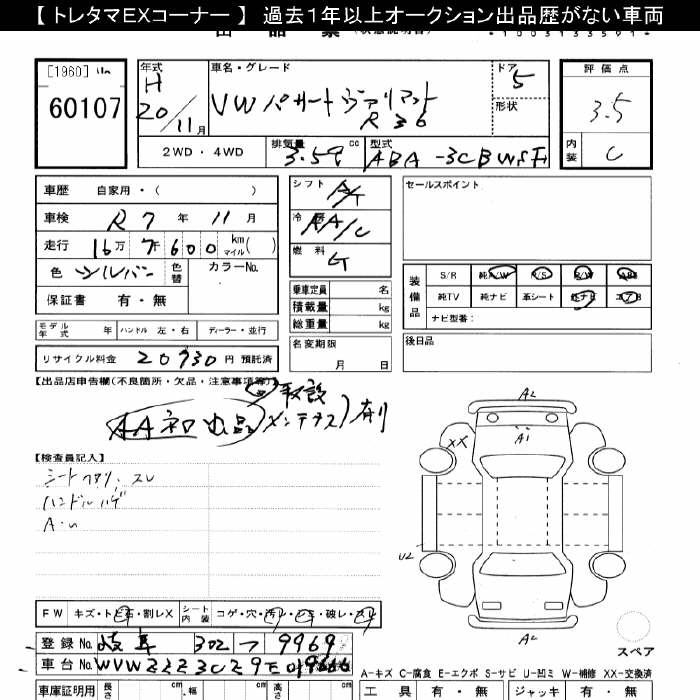 【 トレタマEXコーナー 】 過去1年以上オークション出品歴がない車両
[1960]
60107
年式 車名・グレード ドア 5
H 20/11月
VW パサートヴァリアント R36
形状
評価点 3.5
内装 C
2WD・4WD 排気量 cc 型式 ABA-3CBWSF
車歴 自家用・( )
車検 R7年11月
走行 16万7千600 km マイル( )
色 シルバー 色替 カラーNo.
保証書 有・無
モデル年式 年 ハンドル 左・右 ディーラー・並行
リサイクル料金 20930 円 預託済
シフト A/T
冷房 AA/C
燃料 G
乗車定員 名
積載量 kg
総重量 kg
名変期限 月 日
セールスポイント
装備品 S/R 純A/W P/S P/W ABS
純TV 純ナビ 革シート 社ナビ エアB
ナビ型番:
後日品
【出品店申告欄(不良箇所・欠品・注意事項等)】
取説
AA初出品 メンテナンス) 有り
【検査員記入】
シートヘタリ、スレ
ハンドルハゲ
A・U
A2
A1
XX
U2
A2
スペア
FW キズ・トビ石・割レX シート内装 コゲ・穴・汚レ・シミ・破レ・スレ
登録No. 岐阜 302 フ 9969
車台No.
A-キズ C-腐食 E-エクボ S-サビ U-凹ミ W-補修 XX-交換済
車庫証明用 長さ cm 幅 cm 高さ cm
工具 有・無 ジャッキ 有・無